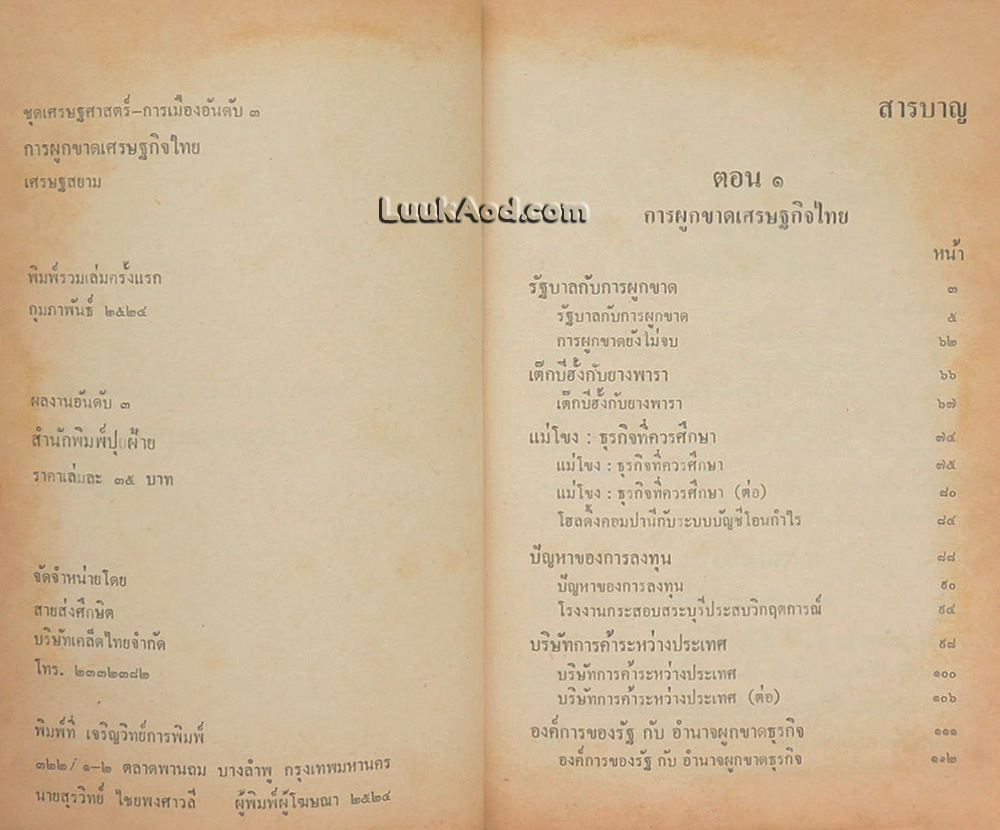 ชุดเศรษฐศาสตร์–การเมืองอันดับ ๓
การผูกขาดเศรษฐกิจไทย
เศรษฐสยาม
พิมพ์รวมเล่มครั้งแรก
กุมภาพันธ์ ๒๕๒๔
ผลงานอันดับ ๓
สำนักพิมพ์ปุยฝ้าย
ราคาเล่มละ ๓๕ บาท
จัดจำหน่ายโดย
สายส่งศึกษิต
บริษัทเคล็ดไทยจำกัด
โทร. ๒๓๓๒๓๘๒
พิมพ์ที่ เจริญวิทย์การพิมพ์
๓๒๒/๑–๒ ตลาดพานถม บางลำพู กรุงเทพมหานคร
นายสุรวิทย์ ไชยพงศาวลี ผู้พิมพ์ผู้โฆษณา ๒๕๒๔
LuukAod.com
สารบาญ
ตอน ๑
การผูกขาดเศรษฐกิจไทย
หน้า
รัฐบาลกับการผูกขาด ๓
รัฐบาลกับการผูกขาด ๕
การผูกขาดยังไม่จบ ๖๒
เต๊กบีฮั้งกับยางพารา ๖๖
เต๊กบีฮั้งกับยางพารา ๖๗
แม่โขง : ธุรกิจที่ควรศึกษา ๗๔
แม่โขง : ธุรกิจที่ควรศึกษา ๗๕
แม่โขง : ธุรกิจที่ควรศึกษา (ต่อ) ๘๐
โฮลดิ้งคอมปานีกับระบบบัญชีโอนกำไร ๘๔
ปัญหาของการลงทุน ๘๘
ปัญหาของการลงทุน ๙๐
โรงงานกระสอบสระบุรีประสบวิกฤตการณ์ ๙๔
บริษัทการค้าระหว่างประเทศ ๙๘
บริษัทการค้าระหว่างประเทศ ๑๐๐
บริษัทการค้าระหว่างประเทศ (ต่อ) ๑๐๖
องค์การของรัฐ กับ อำนาจผูกขาดธุรกิจ ๑๑๑
องค์การของรัฐ กับ อำนาจผูกขาดธุรกิจ ๑๑๒